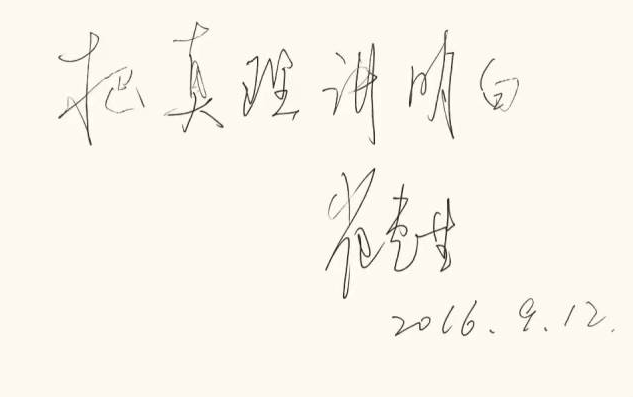 把真理讲明白
2016.9.12.